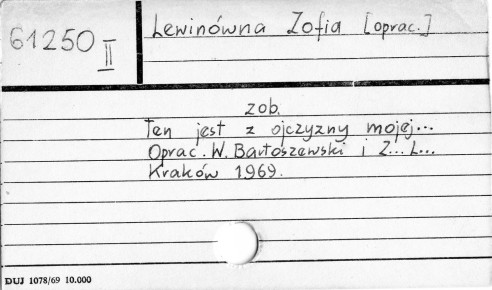 61250 II
Lewinówna Zofia [oprac.]
zob.
Ten jest z ojczyzny mojej...
Oprac. W. Bartoszewski i Z... L...
Kraków 1969.
DUJ 1078/69 10.000